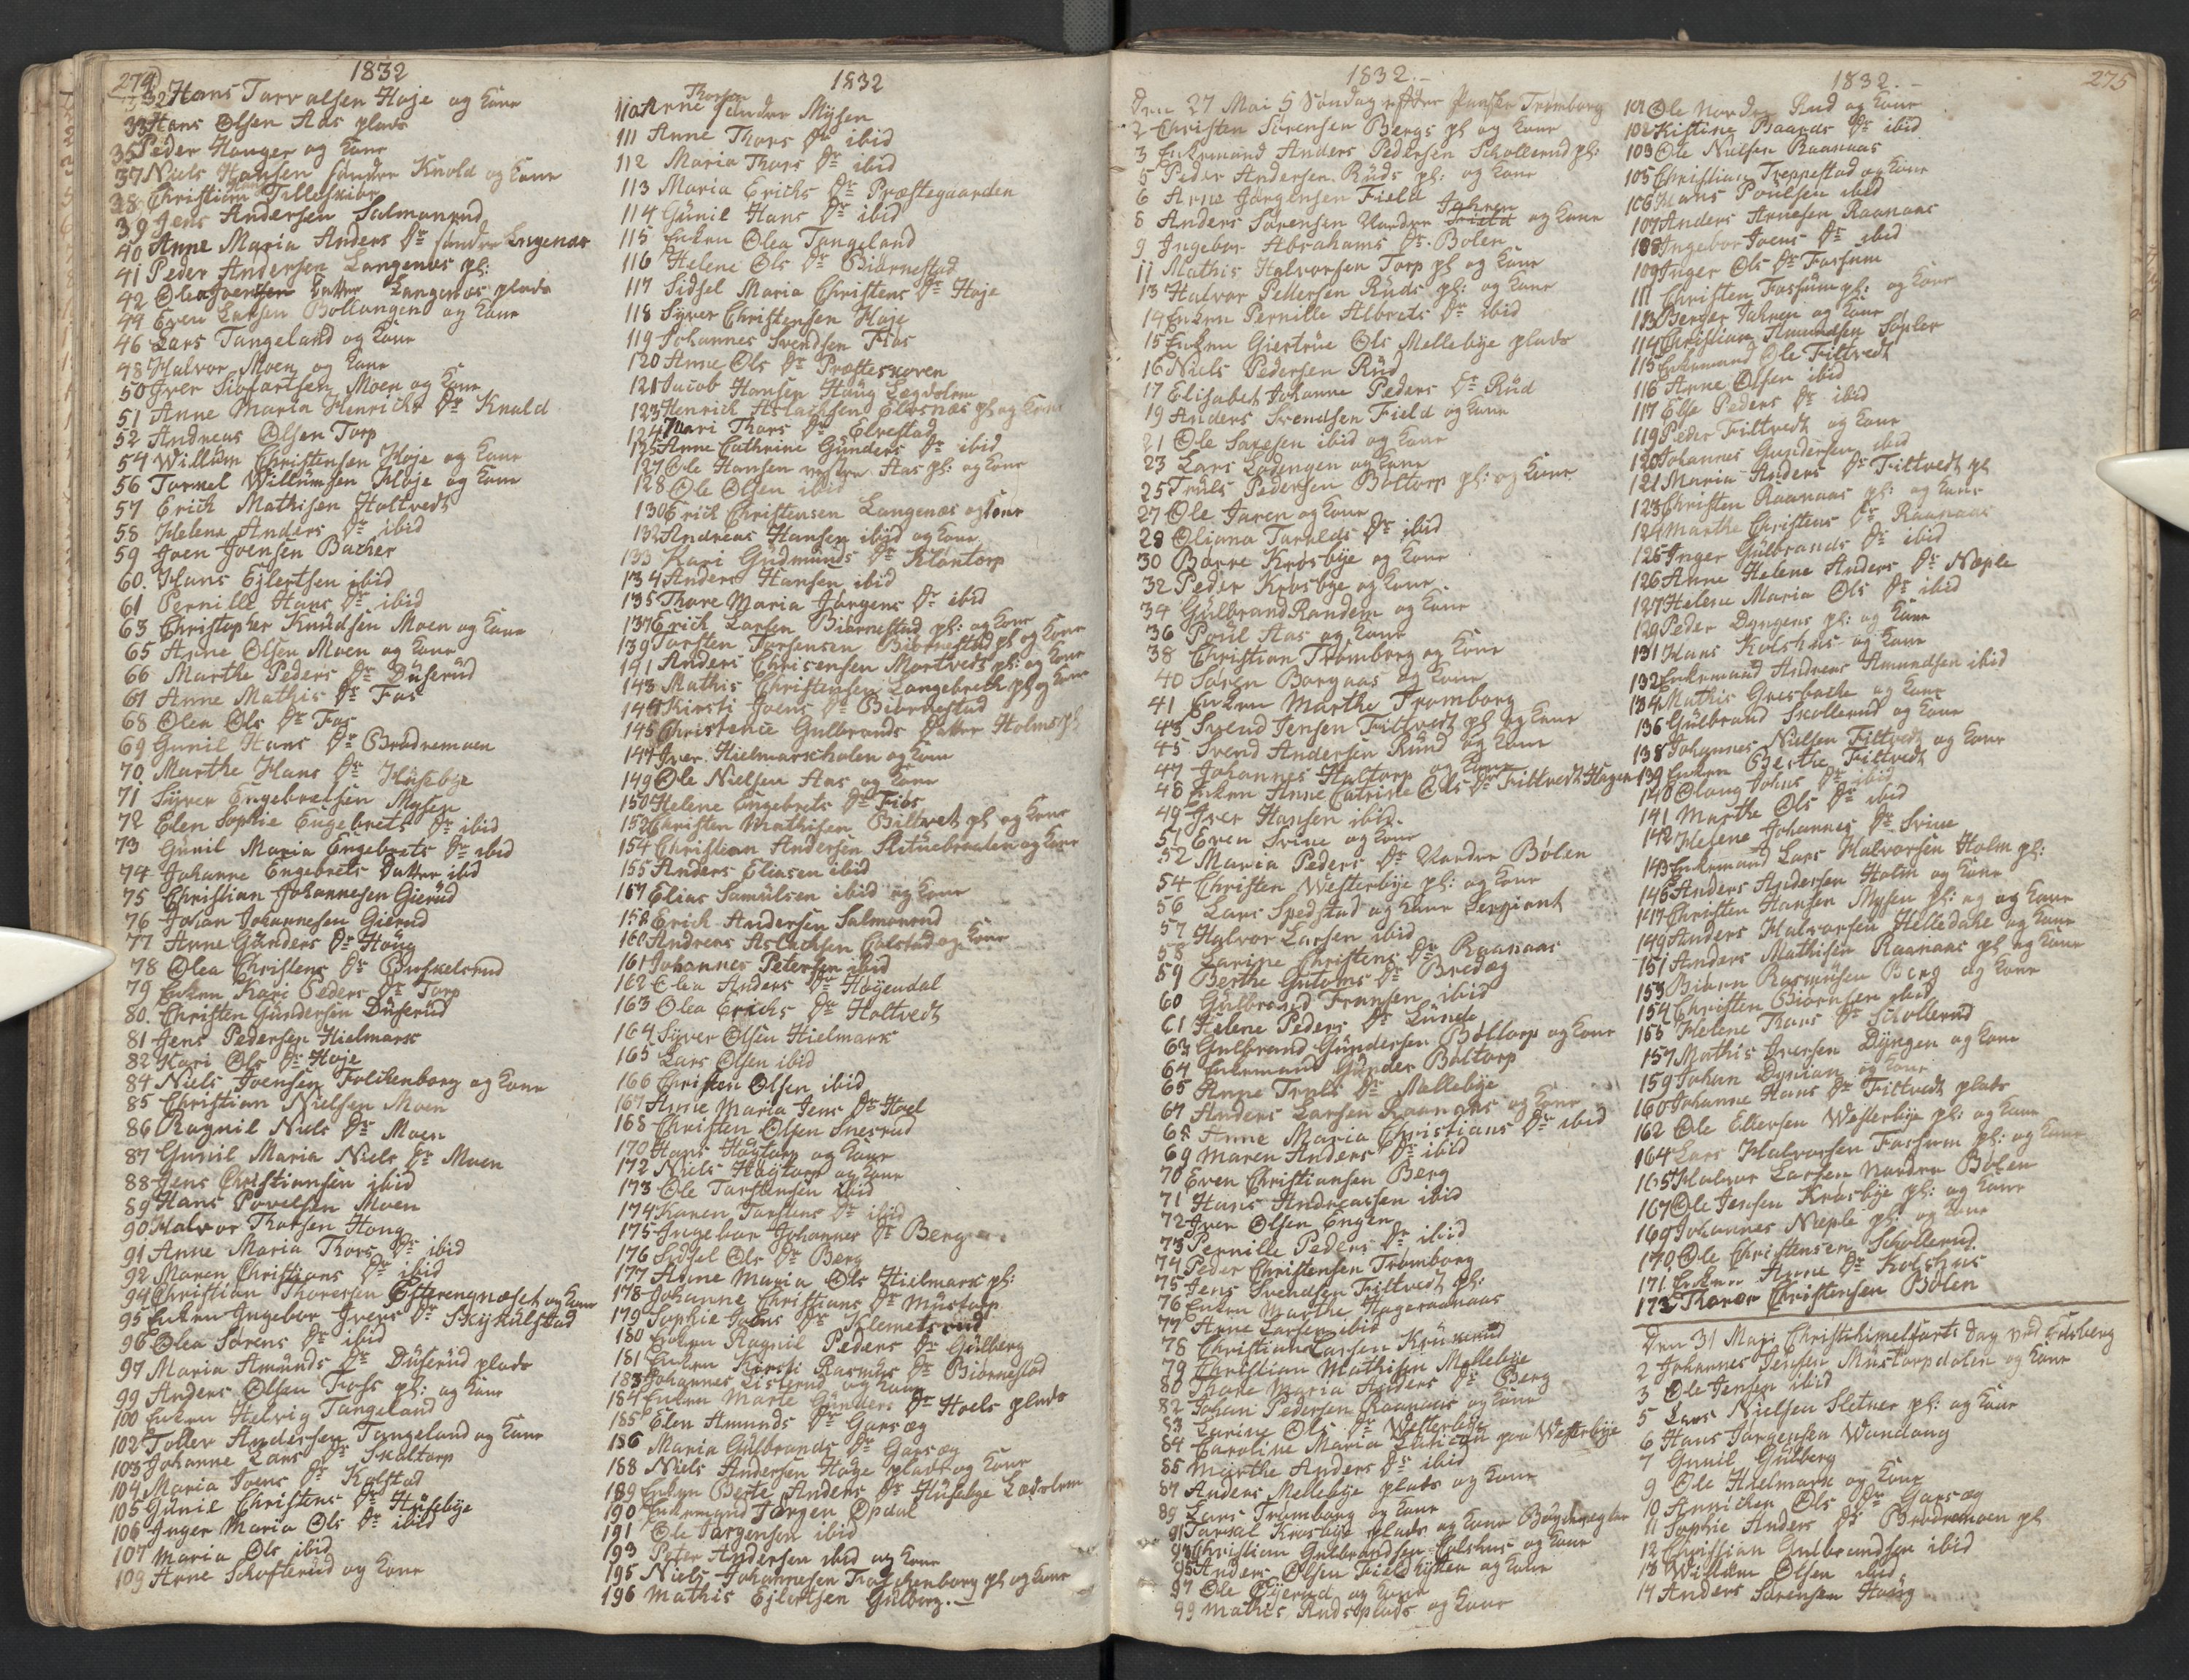 274
1832
32 Hans Torvalsen Høje og Kone
33 Hans Olsen Aas plads
35 Peder Hauger og Kone
37 Niels Hansen søndre Knold og Kone
38 Christian Hans Tilleskiær
39 Jens Andersen Salmonrud
40 Anne Maria Anders Dr søndre Langenæs
41 Peder Andersen Langenæs pl:
42 Olea Joensen Datter Langenæs plads
44 Even Larsen Bollangen og Kone
46 Lars Tangeland og Kone
48 Halvor Moen og Kone
50 Iver Siofartsen Moen og Kone
51 Anne Maria Henrichs Dr Knald
52 Andreas Olsen Torp
54 Willum Christensen Høje og Kone
56 Tormel Willumsen Høje og Kone
57 Erich Mathisen Holtvedt
58 Helene Anders Dr ibid
59 Joen Joensen Bacher
60. Hans Ejlertsen ibid
61 Pernille Hans Dr ibid
63 Christopher Knudsen Moen og Kone
65 Arne Olsen Moen og Kone
66 Marthe Peders Dr Düserüd
67 Anne Mathis Dr Fos
68 Olea Ols Dr Fos
69 Gunil Hans Dr Brødremoen
70 Marthe Hans Dr Husebye
71 Syver Engebretsen Mysen
72 Elen Sophie Engebrets Dr ibid
73 Gunil Maria Engebrets Dr ibid
74 Johanne Engebrets Datter ibid
75 Christian Johannesen Gierüd
76 Johan Johannesen Gierud
77 Anne Günders Dr Houg
78 Olea Christens Dr Buskelsrud
79 Enken Kari Peders Dr Torp
80. Christen Gündersen Düserüd
81 Jens Pedersen Hielmark
82 Kari Ols Dr Høje
84 Niels Joensen Folchenborg og Kone
85 Christian Nielsen Moen
86 Ragnil Niels Dr Moen
87 Gunil Maria Niels Dr Moen
88 Jens Christiansen ibid
89 Hans Povelsen Moen
90 Halvor Thorsen Houg
91 Anne Maria Thors Dr ibid
92 Maren Christians Dr ibid
94 Christian Thoresen Østerengnæset og Kone
95 Enken Ingebor Ivers Dr Skykulstad
96 Olea Sørens Dr ibid
97 Maria Amunds Dr Düserüd plads
99 Anders Olsen Foss pl: og Kone
100 Enken Helvig Tangeland
102 Toller Andersen Tangeland og Kone
103 Johanne Lars Dr Skaltorp
104 Maria Joens Dr Kolstad
105 Gunil Christens Dr Husebye
106 Inger Maria Ols Dr ibid
107 Maria Ols ibid
109 Arne Schofterud og Kone
1832
110 Arne Thorsen søndre Mysen
111 Anne Thors Dr ibid
112 Maria Thors Dr ibid
113 Maria Erichs Dr Præstegaarden
114 Günil Hans Dr ibid
115 Enken Olea Tangeland
116 Helene Ols Dr Biørnestad
117 Sidsel Maria Christens Dr Høje
118 Syver Christensen Høje
119 Johannes Svendsen Fos
120 Anne Ols Dr Præsteskoven
121 Jacob Hansen Houg Lægdslem
123 Henrich Aslachsen Elvsnæs pl og Kone
124 Mari Thors Dr Elvestad
125 Anne Cathrine Günders Dr ibid
127 Ole Hansen vestre Aas pl: og Kone
128 Ole Olsen ibid
130 Erich Christensen Langenæs og Kone
132 Andreas Hansen ibid og Kone
133 Kari Gudmunds Dr Klontorp
134 Anders Hansen ibid
135 Thore Maria Jørgens Dr ibid
137 Erich Larsen Biørnestad pl: og Kone
139 Torsten Torsensen Biørnestad pl og Kone
141 Anders Chrisensen Mortvedt pl: og Kone
143 Mathis Christensen Langebrech pl og Kone
144 Kirsti Joens Dr Biørnestad
145 Christence Gulbrands Datter Holms pl
147 Iver Hielmarscholen og Kone
149 Ole Nielsen Aas og Kone
150 Helene Engebrets Dr Fios
152 Christen Mathisen Biltvet pl og Kone
154 Christian Andersen Slitüebraaten og Kone
155 Anders Eliasen ibid
157 Elias Samülsen ibid og Kone
158 Erich Andersen Salmonrud
160 Andreas Aslachsen Colstad og Kone
161 Johannes Petersen ibid
162 Olea Anders Dr Høyendal
163 Olea Erichs Dr Holtvedt
164 Syver Olsen Hielmark
165 Lars Olsen ibid
166 Christen Olsen ibid
167 Anne Maria Jens Dr Hoel
168 Christen Olsen Snesrud
170 Hans Høytorp og Kone
172 Niels Høytorp og Kone
173 Ole Torstensen ibid
174 Karen Torstens Dr ibid
175 Ingebor Johannes Dr Berg
176 Sidsel Ols Dr Berg
177 Anne Maria Ols Hielmark pl:
178 Johanne Christians Dr Müstorp
179 Sophie Joens Dr Klemetsrud
180 Enken Ragnil Peders Dr Gülberg
181 Enken Kirsti Rasmus Dr Biørnestad
183 Johannes Listerud og Kone
184 Enken Marte Günders Dr Hoels plads
185 Elen Amunds Dr Garsæg
186 Maria Gulbrands Dr Garsæg
188 Niels Andersen Høje plads og Kone
189 Enken Berte Anders Dr Husebye Lædslem
190 Enkemand Jørgen Opdal
191 Ole Jørgensen ibid
193 Peter Andersen ibid og Kone
195 Niels Johannesen Foschenborg pl og Kone
196 Mathis Ejlertsen Gulborg.
1832.
Den 27 Mai 5 Søndag efter Paaske Trømborg
2 Christen Sørensen Bergs pl og Kone
3 Enkemand Anders Pedersen Schollerud pl:
5 Peder Andersen Rüds pl: og Kone
6 Arne Jørgensen Field
8 Anders Sørensen Nordre Jahren og Kone
9 Ingebor Abrahams Dr. Bølen
11 Mathis Halvorsen Torp pl og Kone
13 Halvor Pettersen Rüds pl: og Kone
14 Enken Pernille Albrets Dr ibid
15 Enken Giertrue Ols Mellebye plads
16 Niels Pedersen Rüd
17 Elisabet Johanne Peders Dr Rüd
19 Anders Svendsen Field og Kone
21 Ole Sørensen ibid og Kone
23 Lars Lødengen og Kone
25 Truls Pedersen Boltorp pl: og Kone
27 Ole Jaren og Kone
28 Oliana Taralds Dr ibid
30 Børre Krosbye og Kone
32 Peder Krosbye og Kone
34 Gulbrand Randem og Kone
36 Poul Aas og Kone
38 Christian Trømborg og Kone
40 Søren Borgaas og Kone
41 Enken Marthe Tromborg
43 Svend Jensen Filtvedt pl og Kone
45 Svend Andersen Rund og Kone
47 Johannes Haltorp og Kone
48 Enken Anne Catrine Ols Dr Tiltvedt Hagen
49 Iver Hansen ibid.
51 Even Svine og Kone
52 Maria Peders Dr Nordre Bølen
54 Christen Westerbye pl: og Kone
56 Lars Spedstad og Kone Sergiant
57 Halvor Larsen ibid
58 Larine Christens Dr Raanaas
59 Berthe Gutoms Dr Bredæg
60 Gülbrand Fransen ibid
61 Helene Peders Dr Lunde
63 Gulbrand Gündersen Boltorp og Kone
64 Enkemand Günder Boltorp
65 Anne Truls Dr Mellebye
67 Anders Larsen Raanaas og Kone
68 Anne Maria Christians Dr ibid
69 Maren Anders Dr ibid
70 Even Christiansen Berg
71 Hans Andreassen ibid
72 Iver Olsen Engen
73 Pernille Peders Dr ibid
74 Peder Christensen Trømborg
75 Jens Svendsen Fittvedt pl:
76 Enken Marthe Hageraanaas
77 Arne Larsen ibid
78 Christian Larsen Krüserüd
79 Christian Mathisen Mellebye
80 Thore Maria Anders Dr Berg
82 Johan Pedersen Raanaas og Kone
83 Larine Ols Dr Westerbye
84 Caroline Maria paa Westerbye
85 Marthe Anders Dr ibid
87 Anders Mellebye plads og Kone
89 Lars Trømborg og Kone
91 Tarral Krosbye plads og Kone
93 Christian Gulbrandsen Colshus og Kone
95 Anders Olsen Fieldkisten og Kone
97 Ole Gjerud og Kone
99 Mathis Rudsplads og Kone
1832.
275
101 Ole Nordre Rud og Kone
102 Kistine Baards Dr ibid
103 Ole Nielsen Raanaas
105 Christian Treppestad og Kone
106 Hans Poulsen ibid
107 Anders Arnesen Raanaas
108 Ingebor Joens Dr ibid
109 Inger Ols Dr Fossum
111 Christen Fossum pl: og Kone
113 Berger Jahren og Kone
114 Christian Amundsen Søpler
115 Enkemand Ole Filtvedt
116 Anne Olsen ibid
117 Else Peders Dr ibid
119 Peder Filtvedt og Kone
120 Johannes Gundersen ibid
121 Maria Anders Dr Tiltvedt pl
123 Christen Raanaas pl: og Kone
124 Marthe Christens Dr Raanaas
125 Inger Gülbrands Dr ibid
126 Anne Helene Anders Dr Næple
127 Helene Maria Ols Dr ibid
129 Peder Dyngens pl: og Kone
131 Hans Kolshus og Kone
132 Enkemand Andreas Amundsen ibid
134 Mathis Græsbache og Kone
136 Gülbrand Skollerud og Kone
138 Johannes Nielsen Filtvedt og Kone
139 Enken Berthe Filtvedt
140 Oloug Johns Dr ibid
141 Marthe Ols Dr ibid
142 Helene Johannes Dr Svine
143 Enkemand Lars Halvorsen Holm pl:
145 Anders Andersen Holm og Kone
147 Christen Hansen Mysen pl: og og Kone
149 Anders Halvorsen Helledahl og Kone
151 Anders Mathisen Raanaas pl og Kone
153 Biørn Rasmusen Berg og Kone
154 Christen Biørnsen ibid
155 Helene Thors Dr Schollerud
157 Mathis Iversen Dyngen og Kone
159 Johan Dynian og Kone
160 Johanne Hans Dr Fittvedt plads
162 Ole Ellevsen Westerbye pl: og Kone
164 Lars Halvorsen Fossum pl: og Kone
165 Halvor Larsen Nordre Bølen
167 Ole Jensen Krosbye pl: og Kone
169 Johannes Næple pl: og Kone
170 Ole Christensen Schollerud
171 Enken Anne Dr Kolshus
172 Thorer Christensen Bølen
Den 31 Maji Christi himelfarts Dag ved Edsberg
2 Johannes Jensen Müstorpdalen og Kone
3 Ole Jensen ibid
5 Lars Nielsen Sletner pl: og Kone
6 Hans Jørgensen Wandang
7 Gunil Gülberg
9 Ole Hielmark og Kone
10 Annichen Ols Dr Garsæg
11 Sophie Anders Dr Brødremoen pl
12 Christian Gulbrandsen ibid
13 Willum Olsen ibid.
14 Anders Sørensen Houg